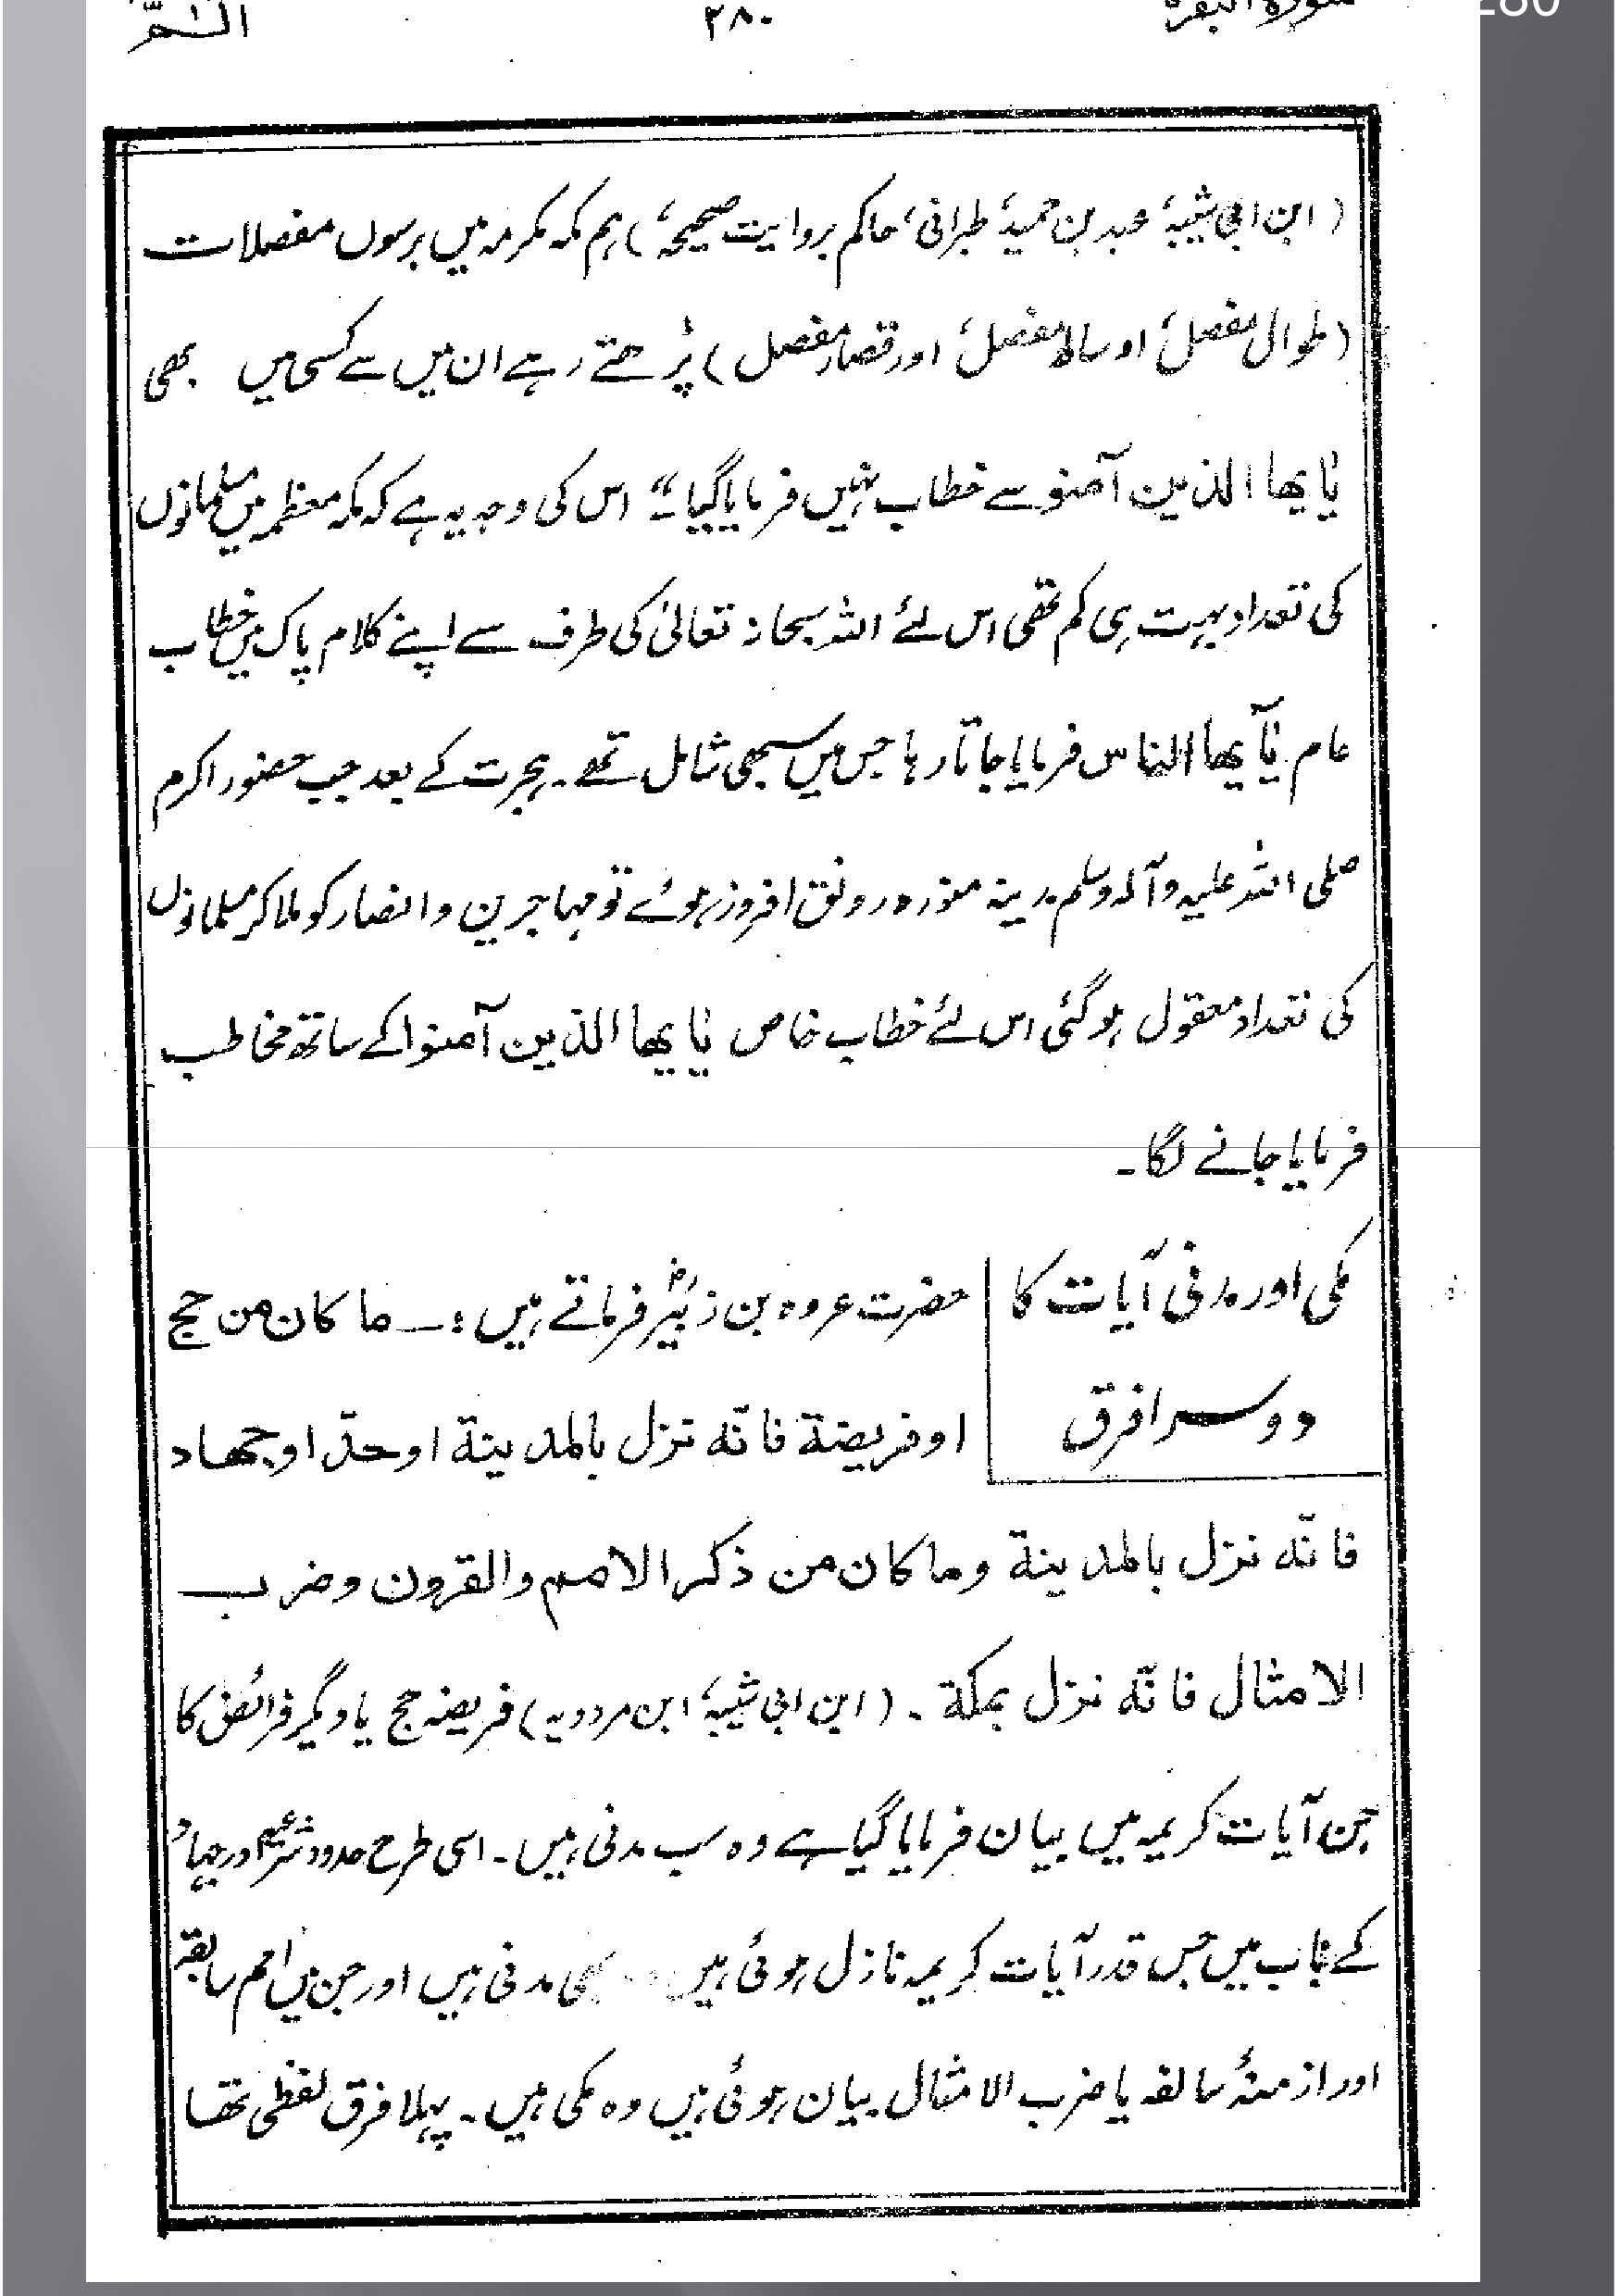 الٓـمّٓ ۲۸۰ سورۃ البقرہ
(ابن ابی شیبہؒ، عبد بن حمیدؒ، طبرانی، حاکم بروایت صحیحہ،) ہم مکہ مکرمہ میں برسوں مفصلات
(طوال مفصل، اوساط مفصل، اور قصار مفصل) پڑھتے رہے ان میں سے کسی میں بھی
یٰایھا الذین آمنو سے خطاب نہیں فرمایا گیا" اس کی وجہ یہ ہے کہ مکہ معظمہ میں مسلمانوں
کی تعداد بہت ہی کم تھی اس لئے اللہ سبحانہ تعالیٰ کی طرف سے اپنے کلام پاک میں خطاب
عام یٰآیھا الناس فرمایا جاتا رہا جس میں سبھی شامل تھے۔ ہجرت کے بعد جب حضور اکرم
صلی اللہ علیہ وآلہ وسلم مدینہ منورہ رونق افروز ہوئے تو مہاجرین و انصار کو ملا کر مسلمانوں
کی تعداد معقول ہوگئی اس لئے خطاب خاص یٰایھا الذین آمنوا کے ساتھ مخاطب
فرمایا جانے لگا۔
مکی اور مدنی آیات کا
دوسرا فرق
حضرت عروہ بن زبیرؓ فرماتے ہیں :۔ ما کان من حج
او فریضۃ فانّہ نزل بالمدینۃ او حدّ او جھاد
فانّہ نزل بالمدینۃ وما کان من ذکر الامم والقرون وضرب
الامثال فانّہ نزل بمکۃ ۔ (ابن ابی شیبہؒ، ابن مردویہ) فریضہ حج یا دیگر فرائض کا
جن آیات کریمہ میں بیان فرمایا گیا ہے وہ سب مدنی ہیں۔ اسی طرح حدود شرعیہ اور جہاد
کے باب میں جس قدر آیات کریمہ نازل ہوئی ہیں مدنی ہیں اور جن میں امم سابقہ
اور ازمنۂ سالفہ یا ضرب الامثال بیان ہوئی ہیں وہ مکی ہیں۔ پہلا فرق لفظی تھا